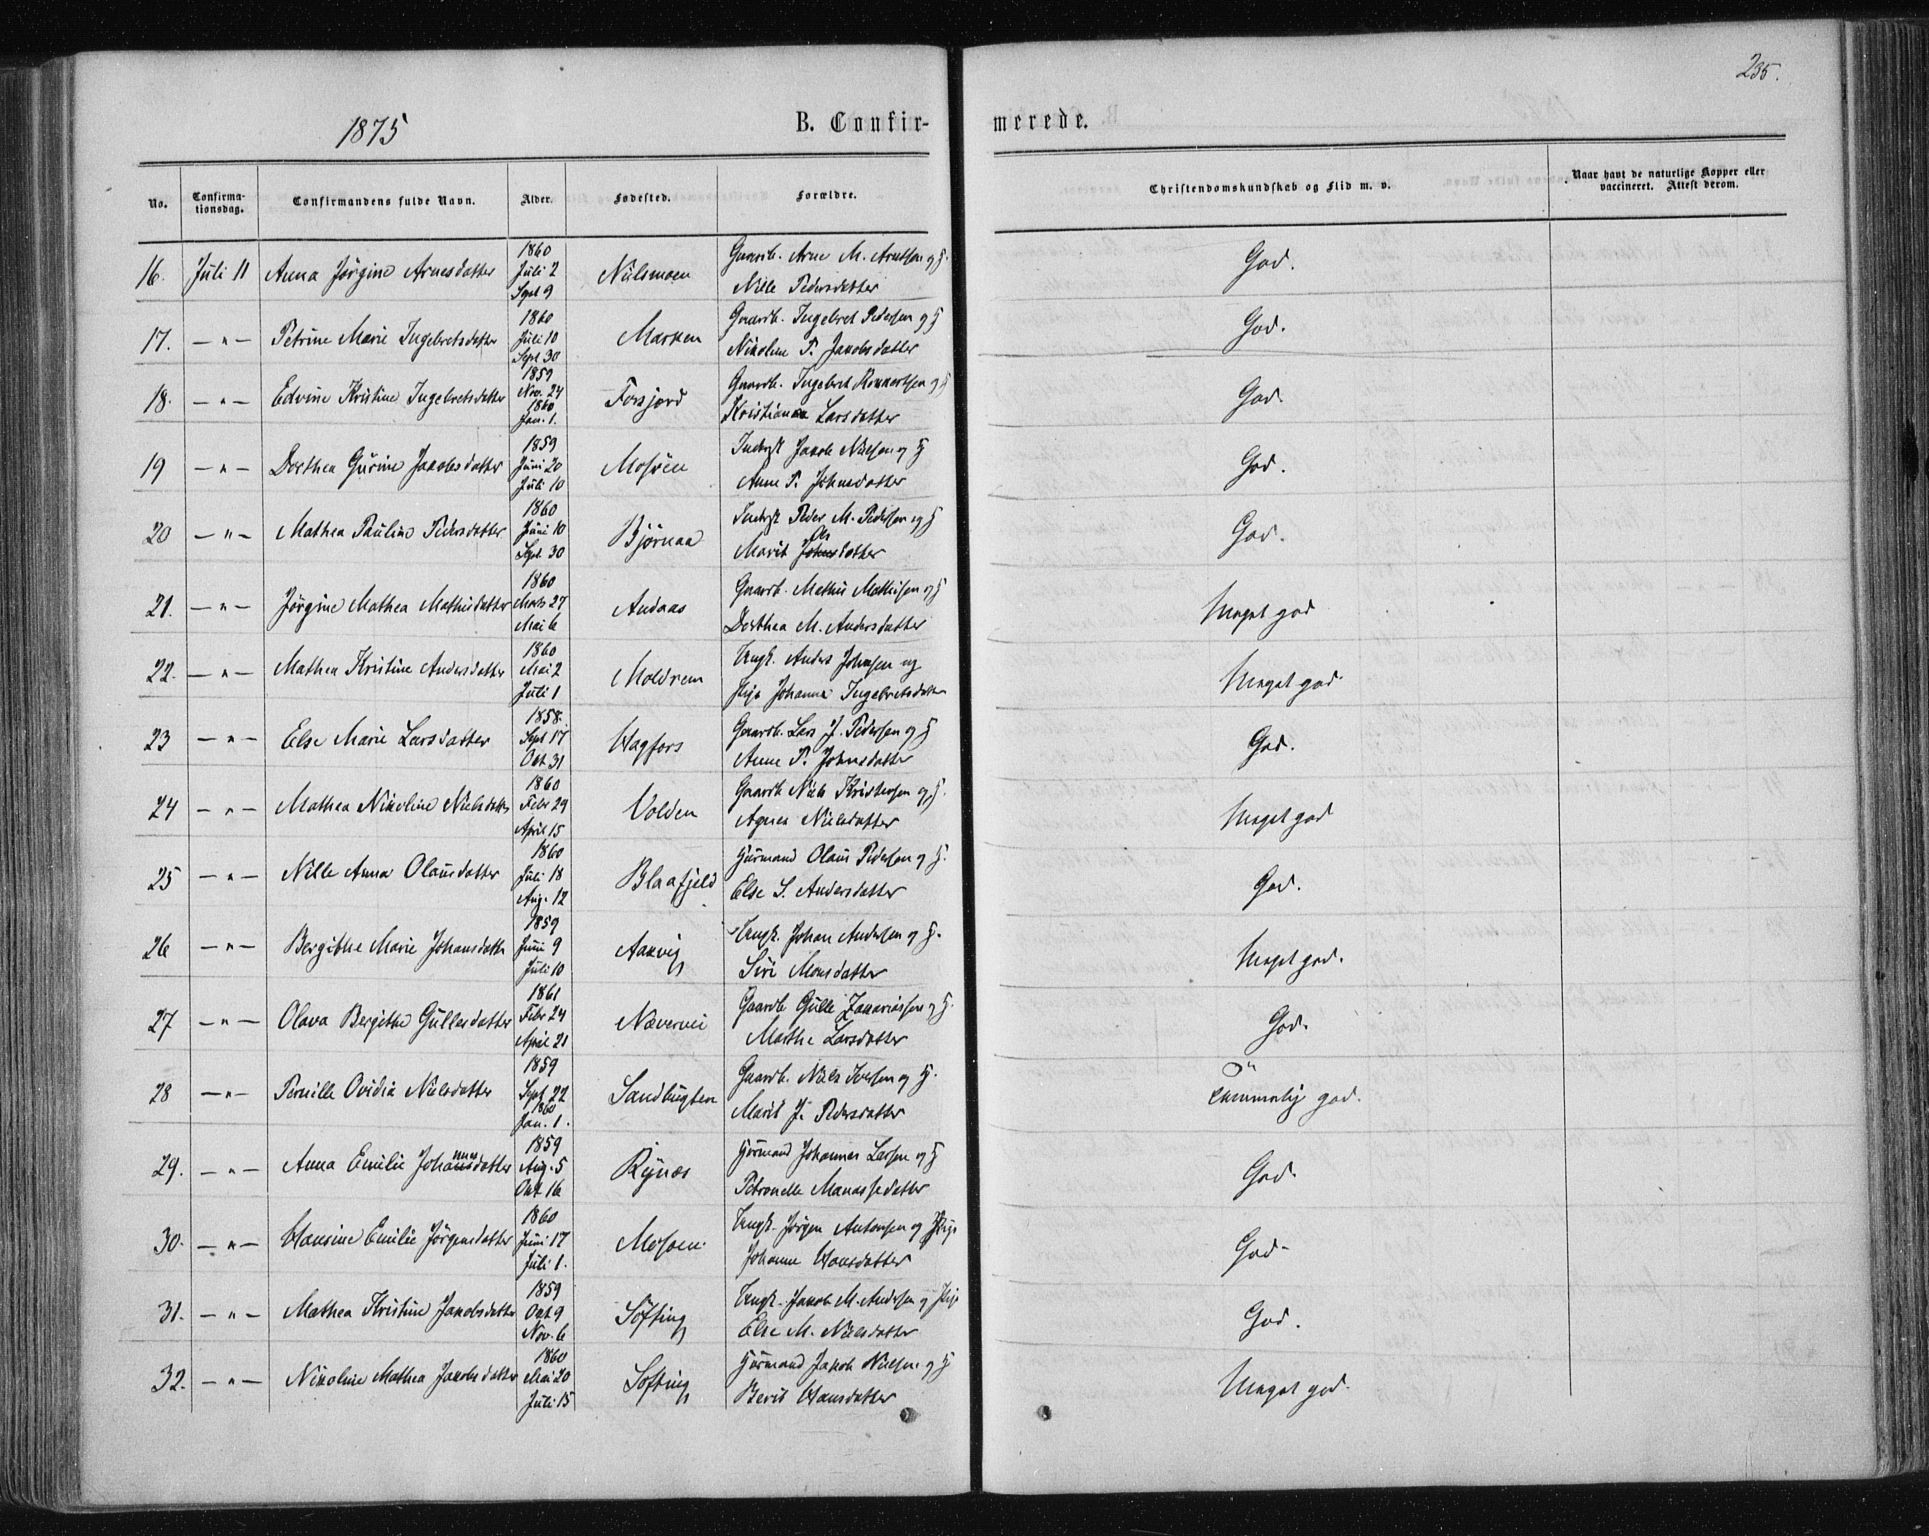 235.
1875
B. Confir-
merede.
No.
Confirma-
tionsdag.
Confirmandens fulde Navn.
Alder.
Fødested.
Forældre.
Christendomskundskab og Flid m. v.
Naar havt de naturlige Kopper eller
vaccineret. Attest derom.
16. Juli 11 Anna Jørgine Arnesdatter 1860 Juli 2 Sept 9 Nilsmoen Gaardb. Arne M. Arntsen og H. Nille Pedersdatter God.
17. — " — Petrine Marie Ingebretsdatter 1860 Juli 10 Sept 30 Marken Gaardb. Ingebret Pedersen og H Nikoline P. Jakobsdatter God.
18. — " — Edvine Kristine Ingebretsdatter 1859 Nov. 24 1860 Jan. 1. Forsjord Gaardb. Ingebret Rennertsen og H Kristiane Larsdatter God.
19 — " — Dorthea Gurine Jakobsdatter 1859 Juni 20 Juli 10 Mosøen Inderst Jakob Nielsen og H Anne P. Johnsdatter God.
20 — " — Mathea Pauline Pedersdatter 1860 Juni 10 Sept. 30 Bjørnaa Inderst Peder M. Pedersen og H Marit Olsdatter God.
21. — " — Jørgine Mathea Mathisdatter 1860 Marts 27 Mai 6 Andaas Gaardb. Mathis Mathisen og H Dorthea M. Andersdatter Meget god
22. — " — Mathea Kristine Andersdatter 1860 Mai 2 Juli 1 Moldrem Ungk. Anders Johnsen og Pige Johanna Ingebretsdatter Meget god
23 — " — Else Marie Larsdatter 1858. Sept 17 Okt 31 Hagfors Gaardb. Lars J. Pedersen og H Anne P. Johnsdatter God.
24 — " — Mathea Nikoline Nielsdatter 1860 Febr 29 April 15 Volden Gaardb Niels Kristensen og H. Agnes Nielsdatter Meget god
25 — " — Nille Anna Olausdatter 1860 Juli 18 Aug. 12 Blaafjeld Husmand Olaus Pedersen og H. Else S. Andersdatter God.
26 — " — Bergithe Marie Johansdatter 1859 Juni 9 Juli 10 Aakvig Ungk. Johan Andersen og H. Siri Monsdatter Meget god.
27 — " — Olava Bergithe Gullesdatter 1861 Febr 24 April 21 Nævernei Gaardb Gulle Zakariassen og H. Marthe Larsdatter God.
28 — " — Pernille Ovidia Nielsdatter 1859 Sept 22 1860 Jan. 1. Sandbugten Gaardb. Niels Iversen og H. Marit J. Pedersdatter Temmelig god.
29. — " — Anna Emilie Johannesdatter 1859 Aug. 5 Okt 16 Rynes Husmand Johannes Larsen og H Petronelle Manassedatter God.
30. — " — Hansine Emilie Jørgensdatter 1860 Juni 17 Juli 1. Mosøen. Ungk. Jørgen Antonsen og Pige Johanne Hansdatter God-
31. — " — Mathea Kristine Jakobsdatter 1859 Okt 9 Nov. 6 Søfting Ungk. Jakob M. Andersen og Pige Else M. Nielsdatter God.
32. — " — Nikoline Mathea Jakobsdatter 1860 Mai 20 Juli 15 Søfting Husmand Jakob Nielsen og H Berit Hansdatter Meget god.